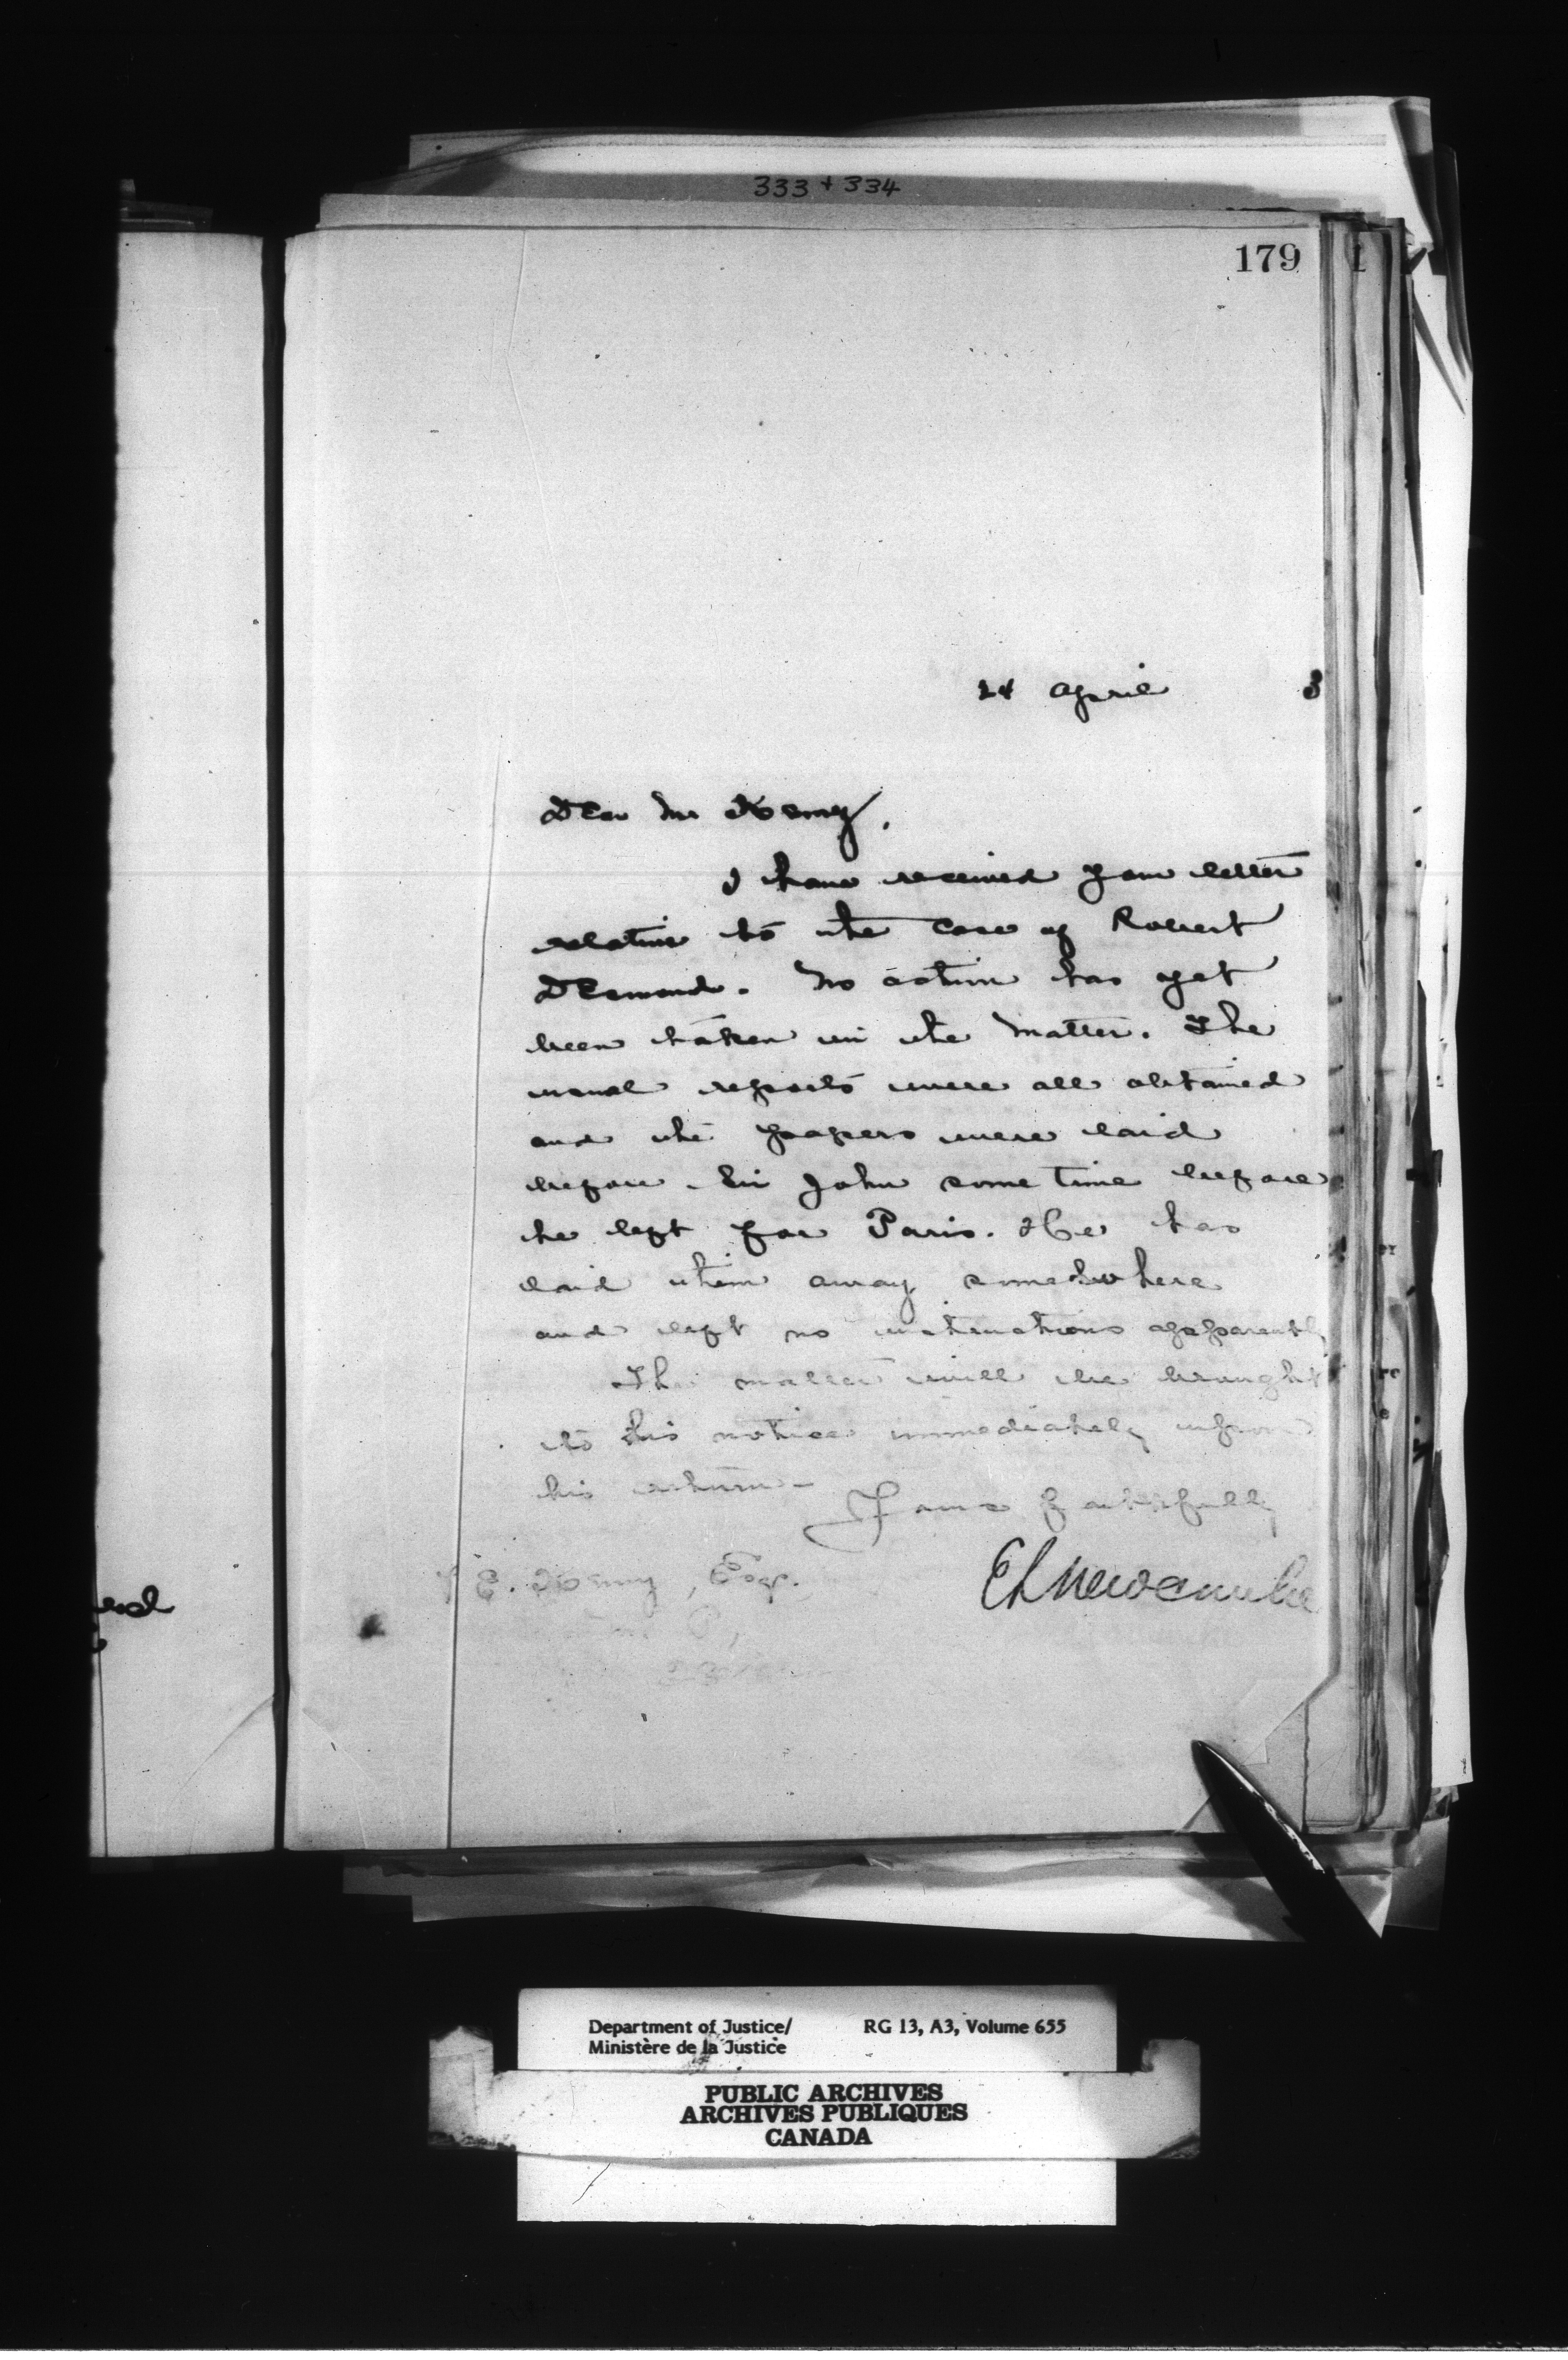 333 + 334
179
24 April 3
Dear Mr Kenny,
I have received your letter
relative to the case of Robert
Desmond. No action has yet
been taken in the matter. The
usual reports were all obtained
and the papers were laid
before Sir John some time before
he left for Paris. He has
laid them away somewhere
and left no instructions apparently
The matter will be brought
to his notice immediately upon
his return -
Yours faithfully
E L Newcombe
E. Kenny, Esq.
Department of Justice/
Ministère de la Justice
RG 13, A3, Volume 655
PUBLIC ARCHIVES
ARCHIVES PUBLIQUES
CANADA